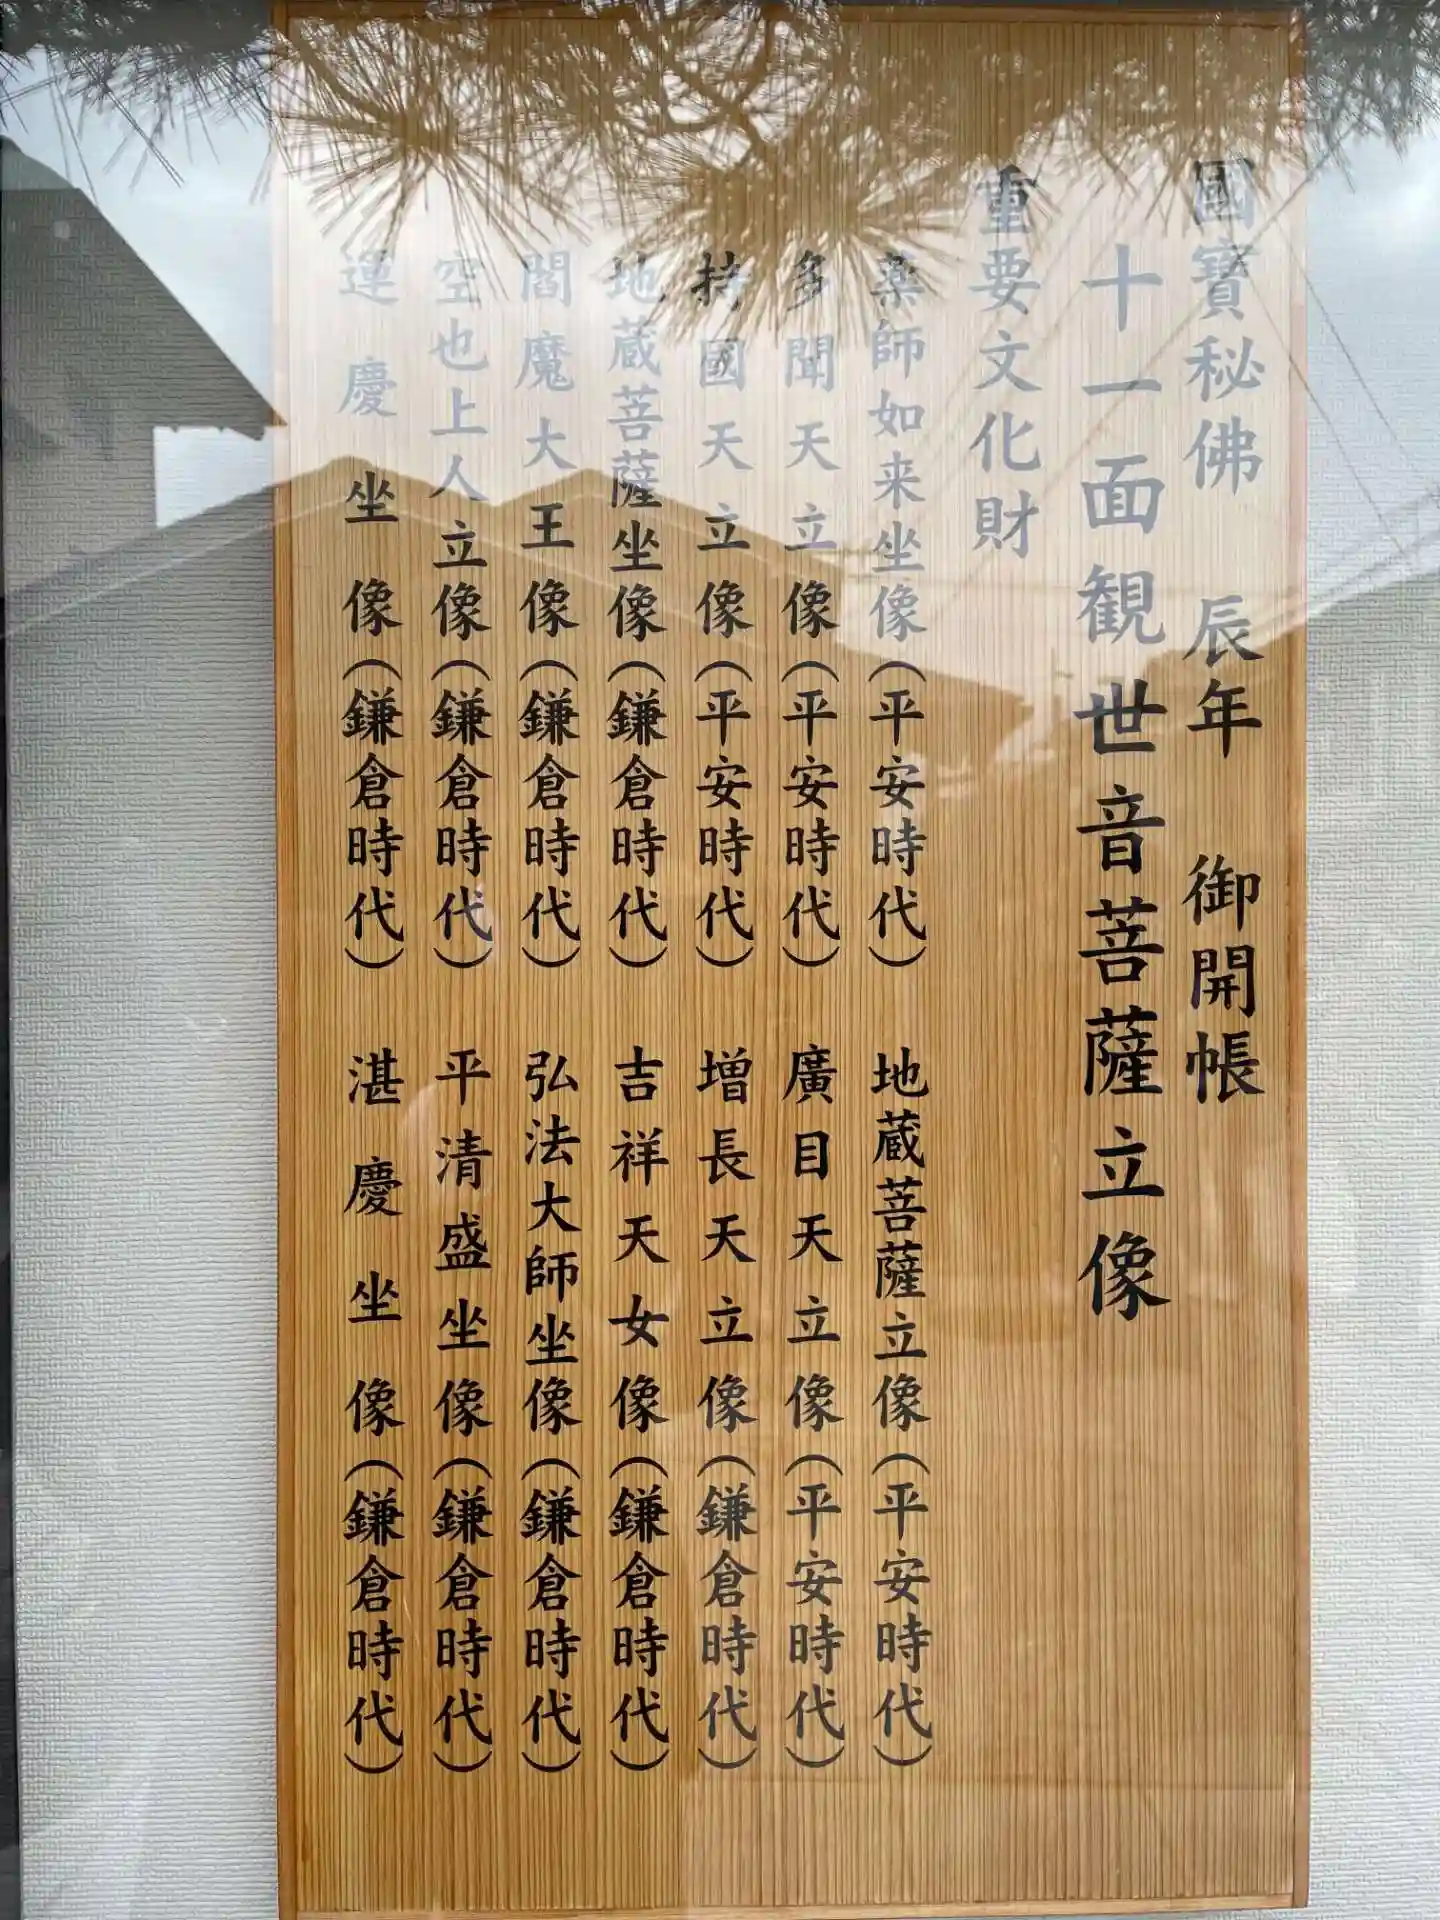 國寶秘佛 辰年 御開帳
十一面観世音菩薩立像
重要文化財
薬師如来坐像(平安時代) 地蔵菩薩立像(平安時代)
多聞天立像(平安時代) 廣目天立像(平安時代)
持國天立像(平安時代) 増長天立像(鎌倉時代)
地蔵菩薩坐像(鎌倉時代) 吉祥天女像(鎌倉時代)
閻魔大王像(鎌倉時代) 弘法大師坐像(鎌倉時代)
空也上人立像(鎌倉時代) 平清盛坐像(鎌倉時代)
運慶坐像(鎌倉時代) 湛慶坐像(鎌倉時代)